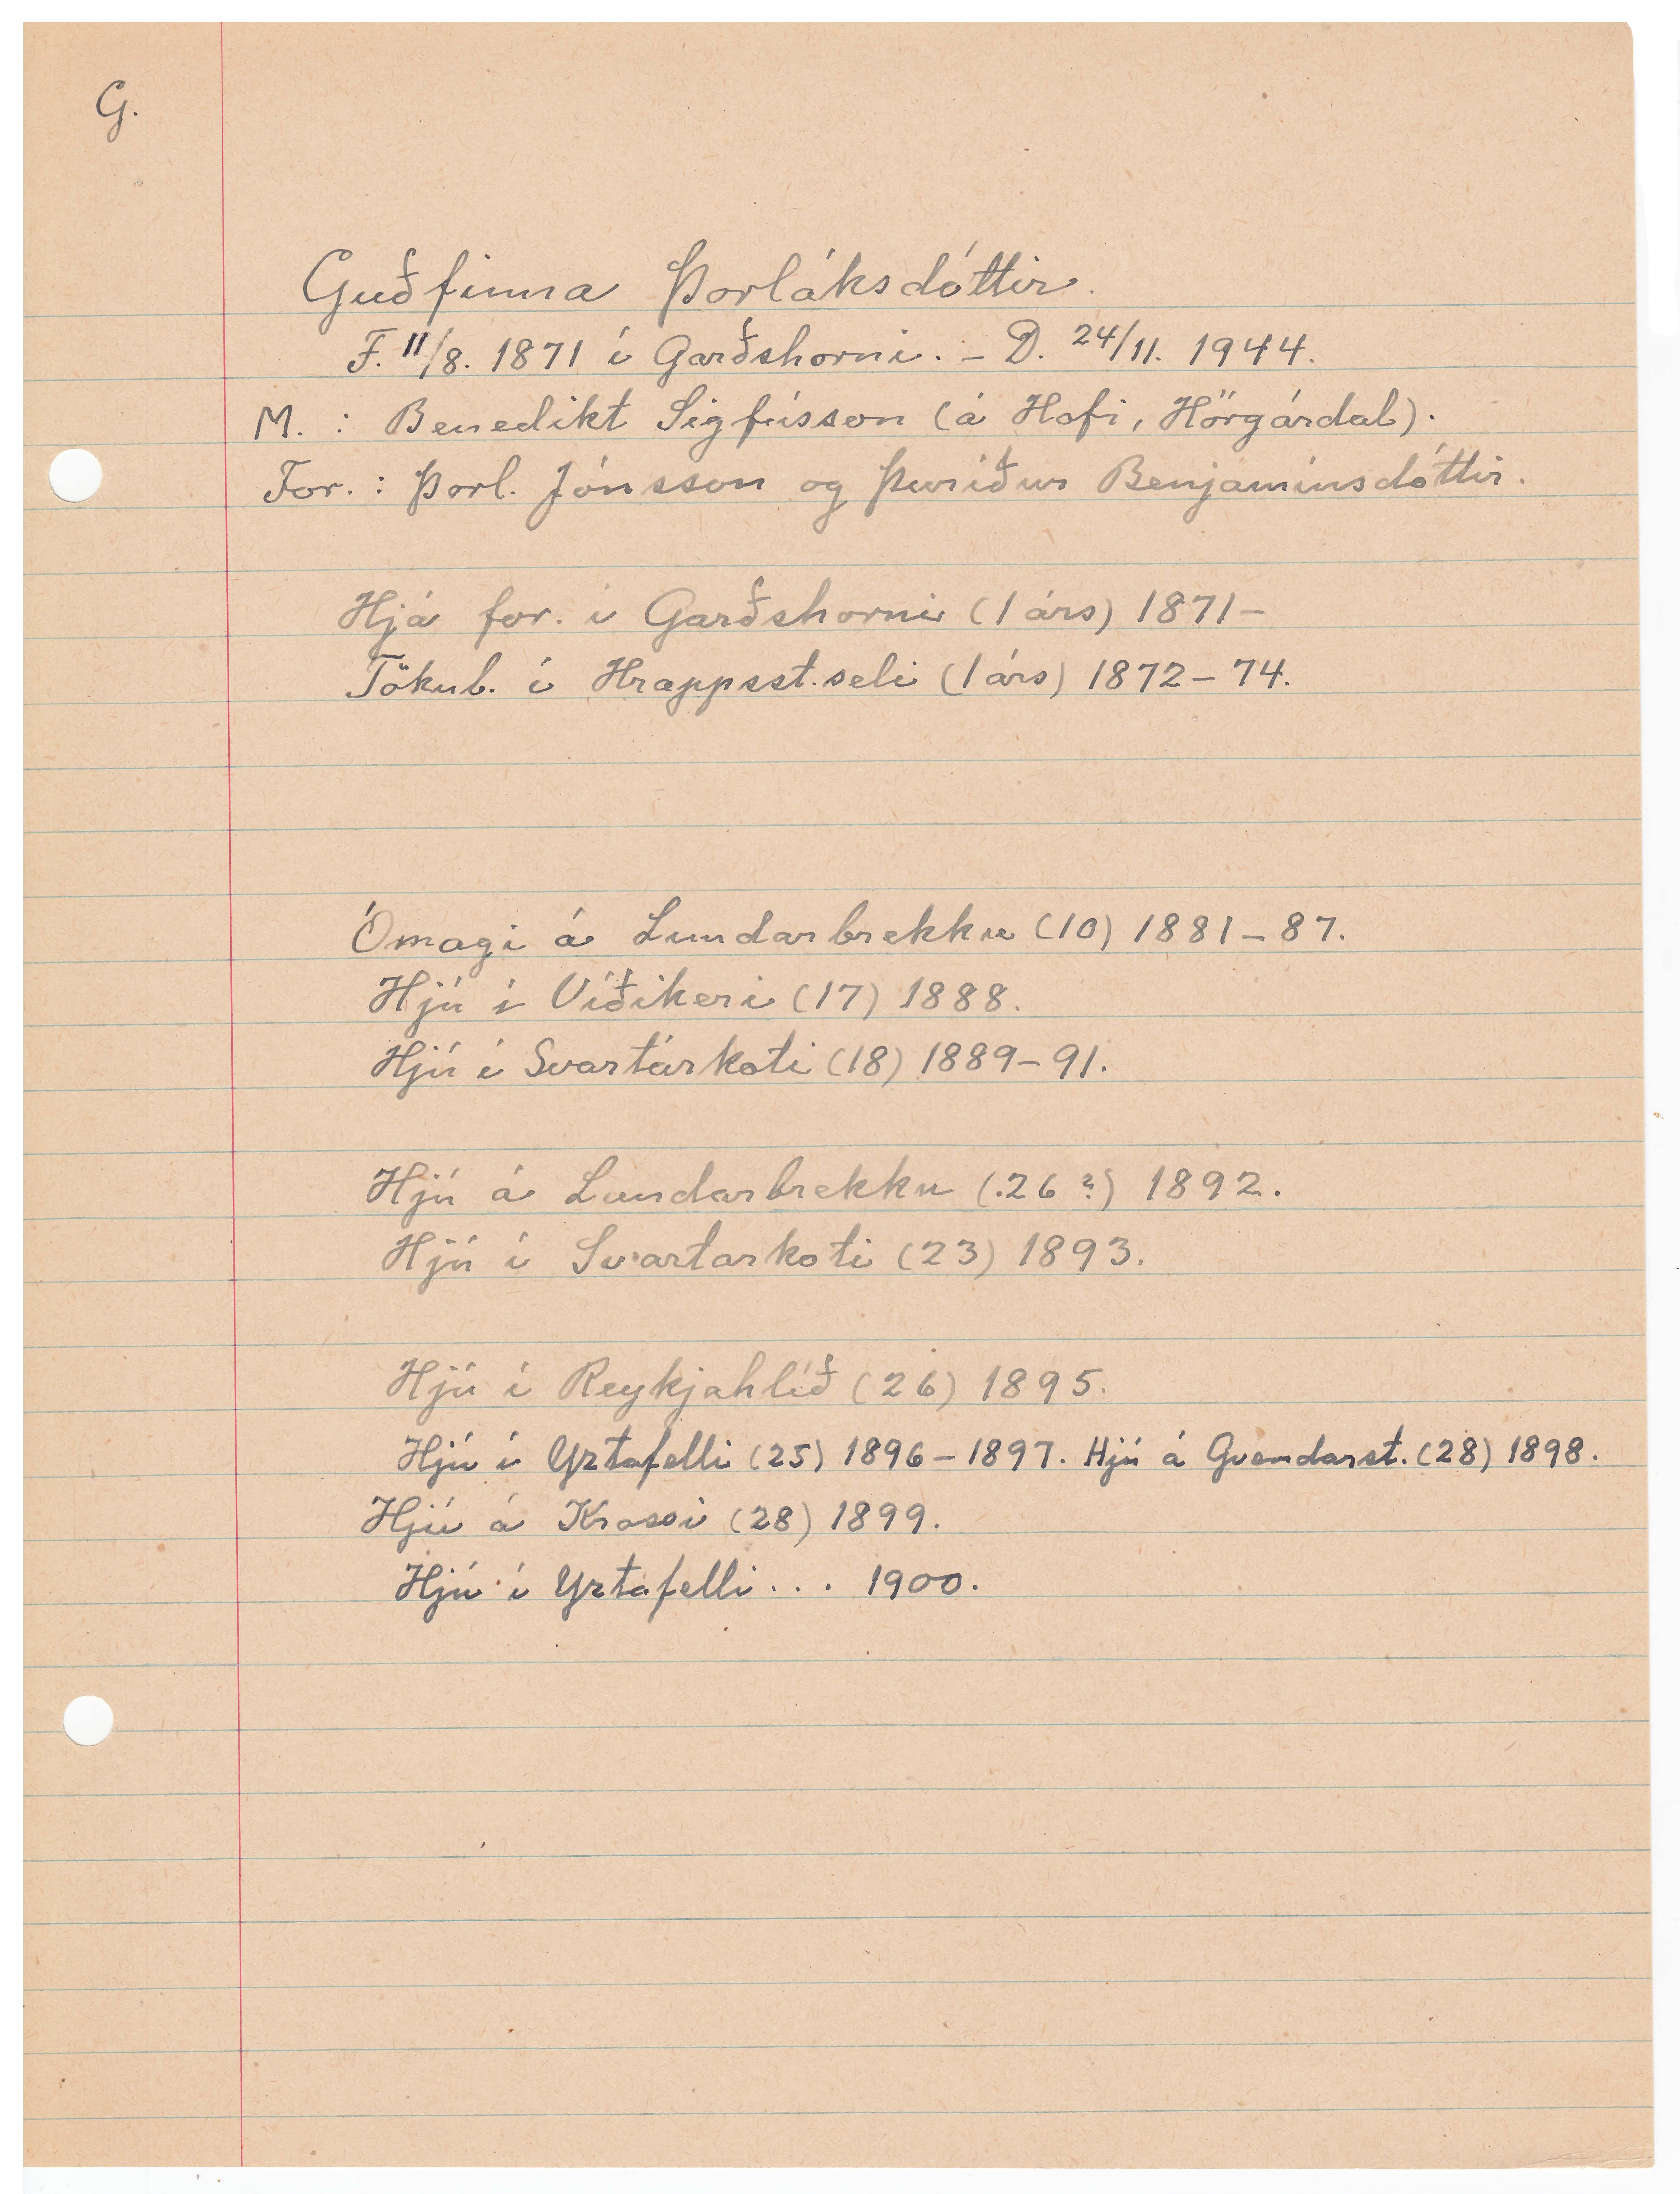 G.
Guðfinna Þorláksdóttir.
F. 11/8. 1871 í Garðshorni. – D. 24/11. 1944.
M. : Benedikt Sigfússon (á Hofi, Hörgárdal).
For. : Þorl. Jónsson og Þuríður Benjamínsdóttir.
Hjá for. í Garðshorni (1 árs) 1871 –
Tökub. í Hrappsst.seli (1 árs) 1872 – 74.
Ómagi á Lundarbrekku (10) 1881 – 87.
Hjú í Víðikeri (17) 1888.
Hjú í Svartárkoti (18) 1889 – 91.
Hjú á Lundarbrekku (26?) 1892.
Hjú í Svartarkoti (23) 1893.
Hjú í Reykjahlíð (26) 1895.
Hjú í Yztafelli (25) 1896 – 1897. Hjú á Gvendarst. (28) 1898.
Hjú á Krossi (28) 1899.
Hjú í Yztafelli . . . 1900.